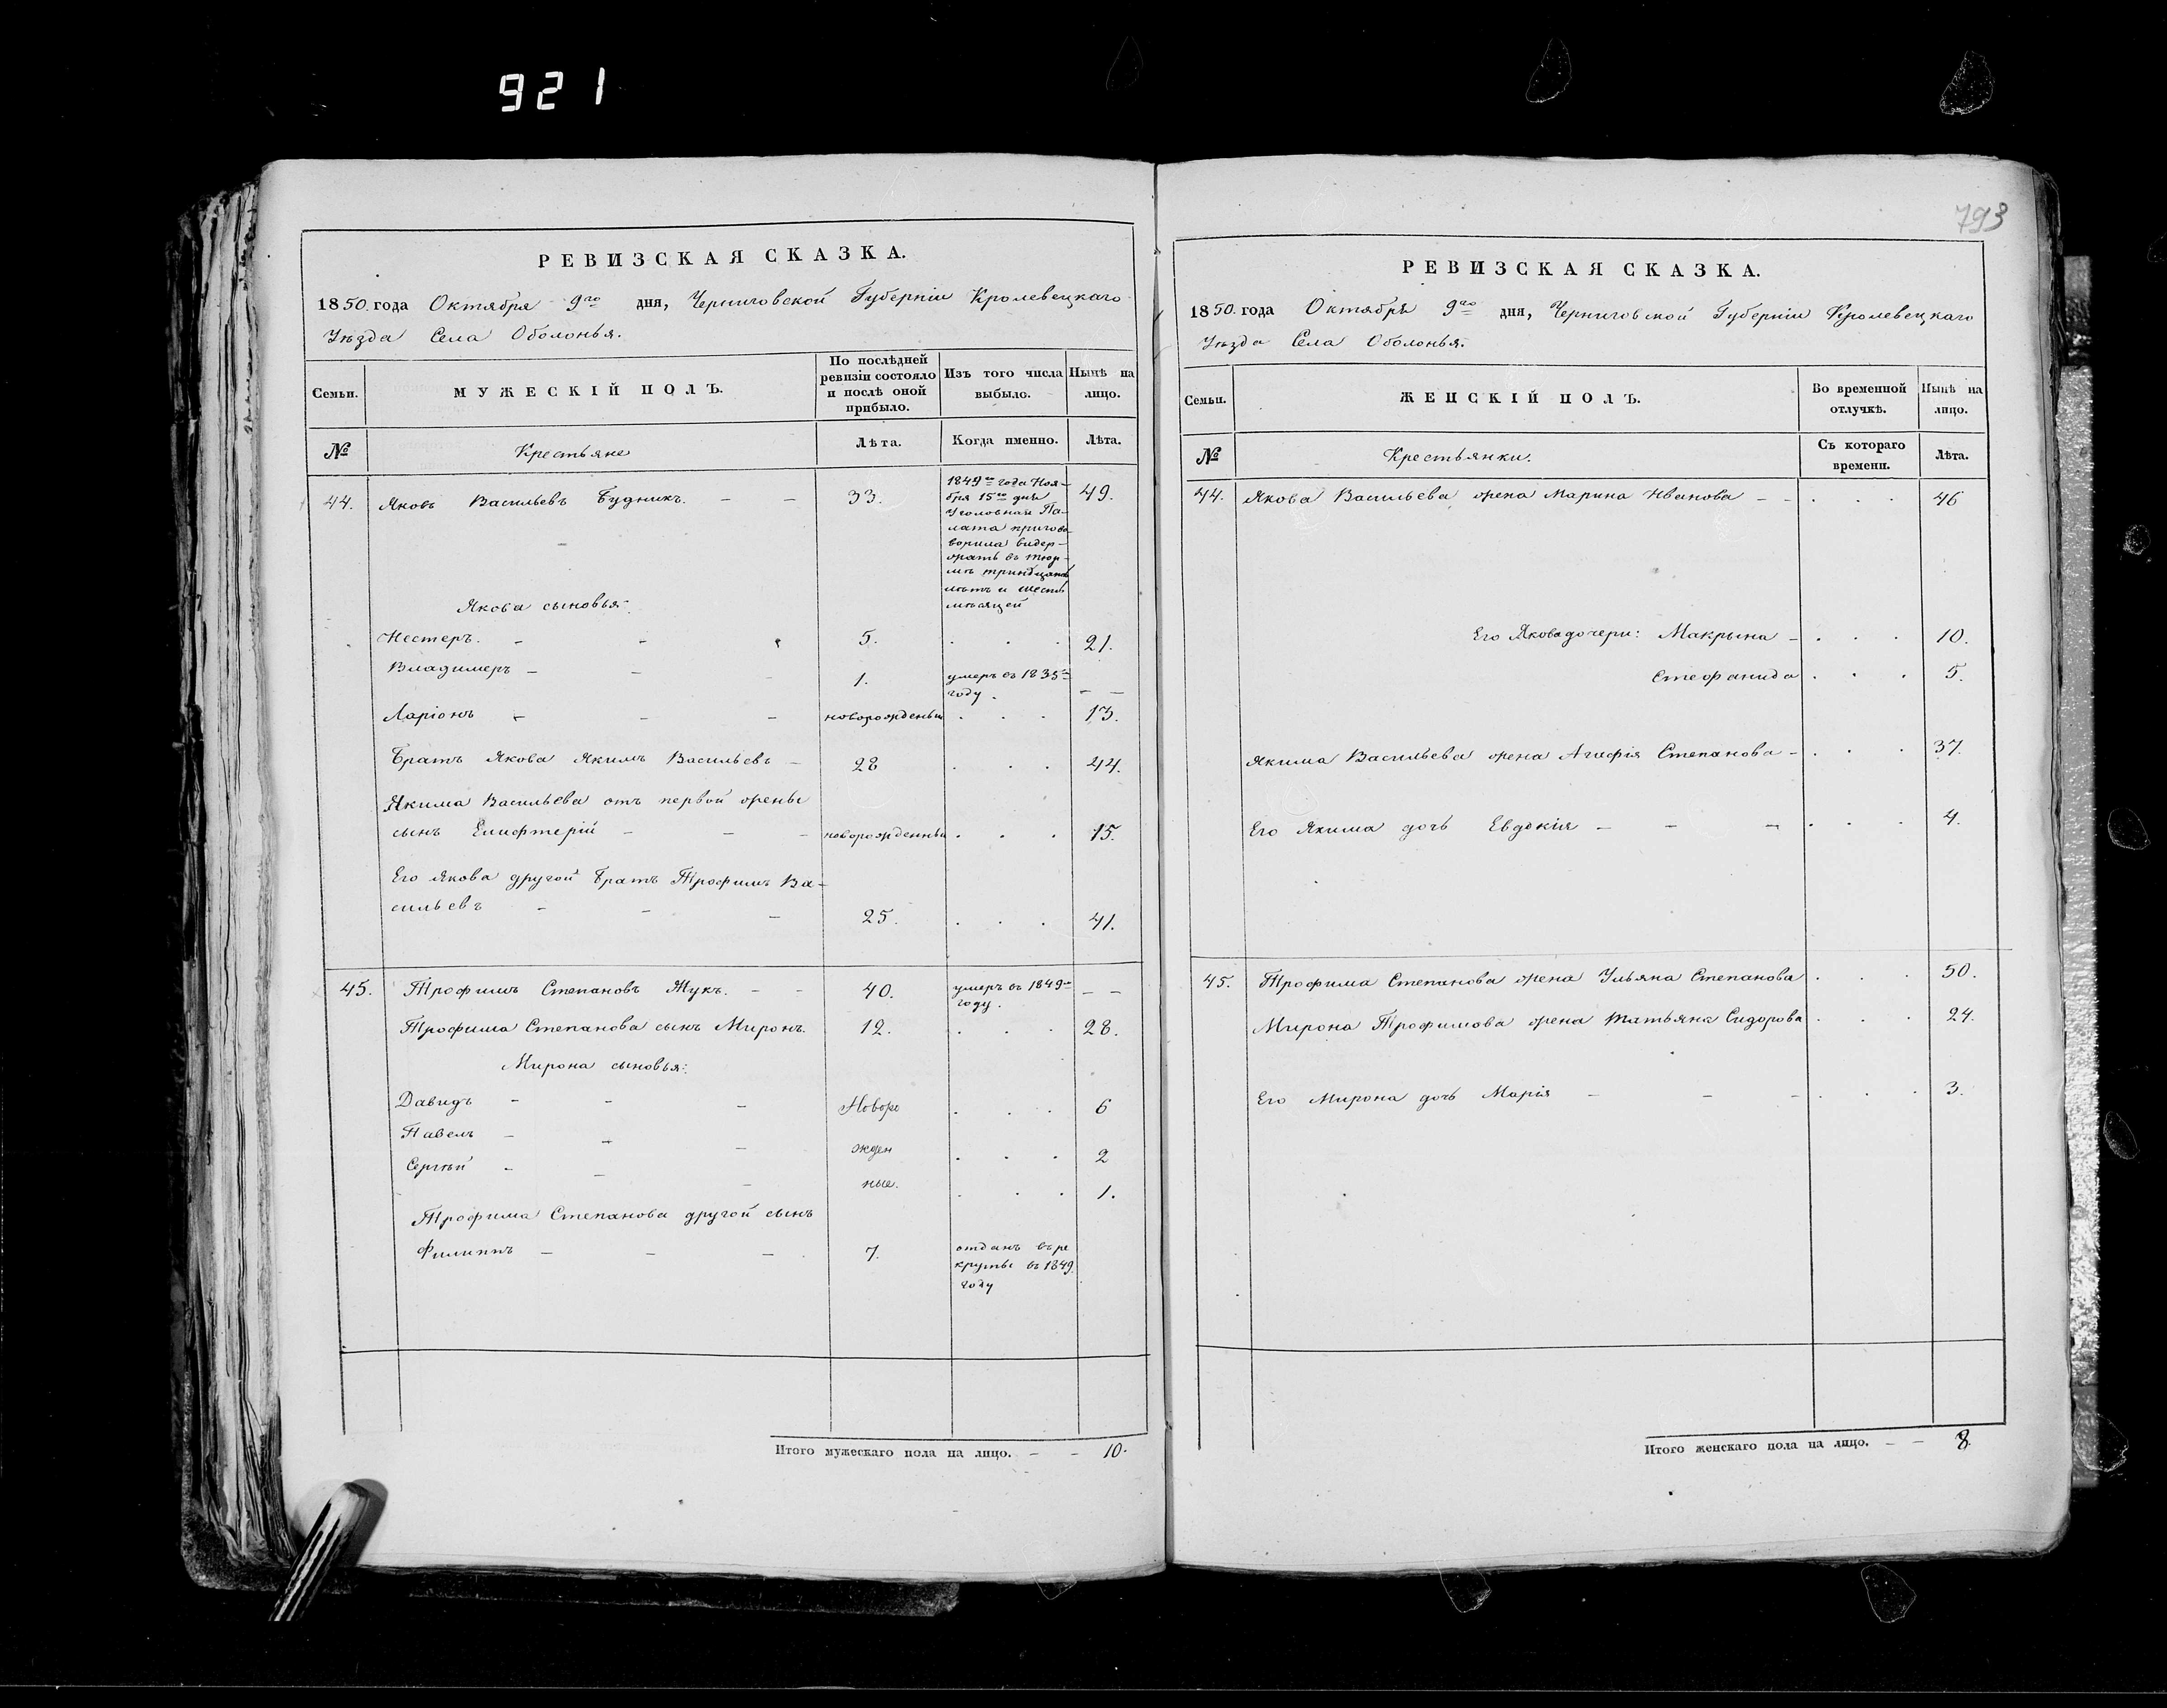 921
РЕВИЗСКАЯ СКАЗКА.
1850. года Октября 9го дня, Черниговской Губерніи Кролевецкаго
Уѣзда Села Оболонья.
Семьи. МУЖЕСКІЙ ПОЛЪ. По послѣдней ревизіи состояло и послѣ оной прибыло. Изъ того числа выбыло. Нынѣ на лицо.
№ Крестьяне Лѣта. Когда именно. Лѣта.
44. Яковъ Васильевъ Будникъ. — — 33. 49.
1849го года Ноя-
бря 15го дня
Уголовная Па-
лата пригово
ворила видер-
жать въ тюр-
мѣ
лѣтъ и шесть
мѣсяцей
Якова сыновья:
Нестеръ. — — 5. . . . 21.
Владимеръ — — 1. умеръ въ 1835м
году. — —
Ларіонъ — — — новорожденный . . . 13.
Братъ Якова Якимъ Васильевъ — 28 . . . 44.
Якима Васильева отъ первой жены
сынъ Елифтерій — — — новорожденный . . . 15.
Его Якова другой братъ Трофимъ Ва-
сильевъ — — — 25. . . . 41.
45. Трофимъ Степановъ Жукъ. — — 40. умеръ въ 1849м — —
году.
Трофима Степанова сынъ Миронъ. 12. . . . 28.
Мирона сыновья:
Давидъ — — — Новоро . . . 6
Павелъ — — — жден . . . 2
Сергѣй — — — ные. . . . 1.
Трофима Степанова другой сынъ
Филиппъ — — — 7. отданъ въ ре
круты въ 1849.
году
Итого мужескаго пола на лицо. — — 10.
793
РЕВИЗСКАЯ СКАЗКА.
1850. года Октября 9го дня, Черниговской Губерніи Кролевецкаго
Уѣзда Села Оболонья.
Семьи. ЖЕНСКІЙ ПОЛЪ. Во временной отлучкѣ. Нынѣ на лицо.
№ Крестьянки. Съ котораго времени. Лѣта.
44. Якова Васильева жена Марина Иванова — — . . . 46
Его Якова дочери: Макрына — . . . 10.
Стефанида . . . 5.
Якима Васильева жена Агафія Степанова — . . . 37.
Его Якима дочь Евдокія — — — . . . 4.
45. Трофима Степанова жена Ульяна Степанова . . . 50.
Мирона Трофимова жена Татьяна Сидорова . . . 24.
Его Мирона дочь Марія — — — . . . 3.
Итого женскаго пола на лицо. — — 8.